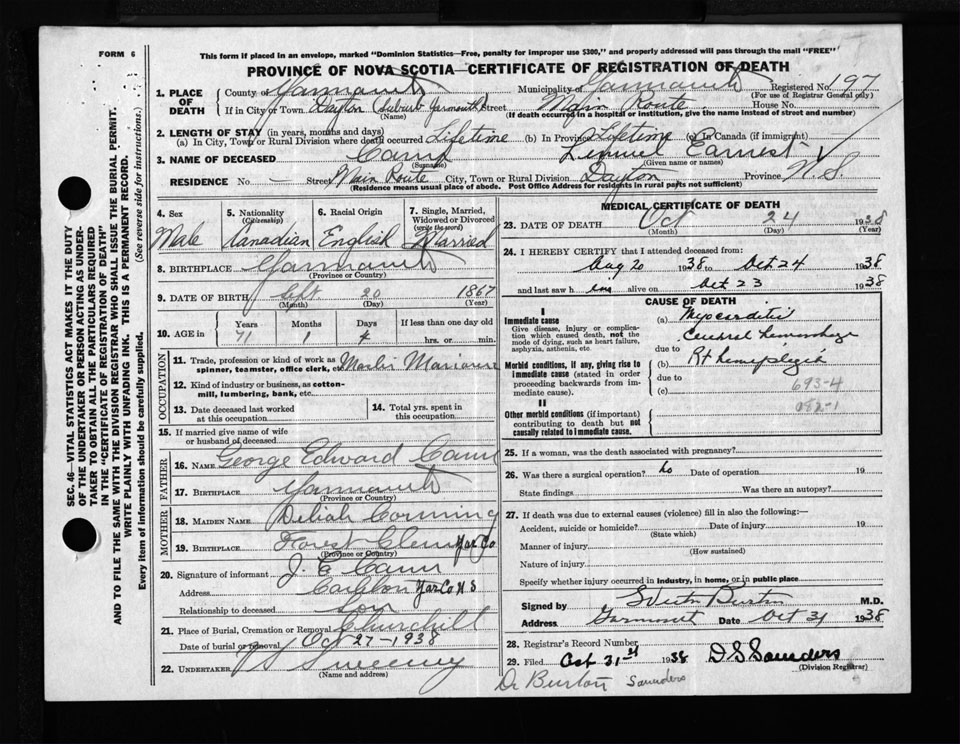 FORM 6
This form if placed in an envelope, marked "Dominion Statistics—Free, penalty for improper use $300," and properly addressed will pass through the mail "FREE"
PROVINCE OF NOVA SCOTIA—CERTIFICATE OF REGISTRATION OF DEATH
1. PLACE OF DEATH
County of Yarmouth Municipality of Yarmouth Registered No. 197
(For use of Registrar General only)
If in City or Town Dayton (Suburb Yarmouth) Street Main Route House No.
(Name) (If death occurred in a hospital or institution, give the name instead of street and number)
2. LENGTH OF STAY (in years, months and days)
(a) In City, Town or Rural Division where death occurred Lifetime (b) In Province Lifetime (c) In Canada (if immigrant)
3. NAME OF DECEASED Cann Lemuel Earnest
(Surname) (Given name or names)
RESIDENCE No. — Street Main Route City, Town or Rural Division Dayton Province N.S.
(Residence means usual place of abode. Post Office Address for residents in rural parts not sufficient)
4. Sex Male
5. Nationality (Citizenship) Canadian
6. Racial Origin English
7. Single, Married, Widowed or Divorced (write the word) Married
8. BIRTHPLACE Yarmouth
(Province or Country)
9. DATE OF BIRTH Sept 20 1867
(Month) (Day) (Year)
10. AGE in Years Months Days If less than one day old
71 1 4 hrs. or min.
OCCUPATION
11. Trade, profession or kind of work as spinner, teamster, office clerk, etc. Mariner
12. Kind of industry or business, as cotton-mill, lumbering, bank, etc.
13. Date deceased last worked at this occupation
14. Total yrs. spent in this occupation
15. If married give name of wife or husband of deceased
FATHER
16. NAME George Edward Cann
17. BIRTHPLACE Yarmouth
(Province or Country)
MOTHER
18. MAIDEN NAME Deliah Corning
19. BIRTHPLACE Forest Glen Yar Co
(Province or Country)
20. Signature of informant J. E. Cann
Address Carleton Yar Co N S
Relationship to deceased son
21. Place of Burial, Cremation or Removal Churchill
Date of burial or removal Oct 27-1938
22. UNDERTAKER Sweeny
(Name and address)
MEDICAL CERTIFICATE OF DEATH
23. DATE OF DEATH Oct 24 1938
(Month) (Day) (Year)
24. I HEREBY CERTIFY that I attended deceased from:
Aug 20 1938 to Oct 24 1938
and last saw him alive on Oct 23 1938
CAUSE OF DEATH
I
Immediate cause
Give disease, injury or complication which caused death, not the mode of dying, such as heart failure, asphyxia, asthenia, etc.
(a) Myocarditis
Cerebral hemorrhage
due to
Morbid conditions, if any, giving rise to immediate cause (stated in order proceeding backwards from immediate cause).
(b) Rt hemiplegia
due to
(c)
693-4
082-1
II
Other morbid conditions (if important) contributing to death but not causally related to immediate cause.
25. If a woman, was the death associated with pregnancy?
26. Was there a surgical operation? no Date of operation 19
State findings Was there an autopsy?
27. If death was due to external causes (violence) fill in also the following:—
Accident, suicide or homicide? Date of injury 19
(State which)
Manner of injury
(How sustained)
Nature of injury
Specify whether injury occurred in industry, in home, or in public place
Signed by Burton M.D.
Address Yarmouth Date Oct 31 1938
28. Registrar's Record Number
29. Filed Oct 31st 1938 D S Saunders
(Division Registrar)
Dr Burton Saunders
SEC. 46—VITAL STATISTICS ACT MAKES IT THE DUTY
OF THE UNDERTAKER OR PERSON ACTING AS UNDER-
TAKER TO OBTAIN ALL THE PARTICULARS REQUIRED
IN THE "CERTIFICATE OF REGISTRATION OF DEATH"
AND TO FILE THE SAME WITH THE DIVISION REGISTRAR WHO SHALL ISSUE THE BURIAL PERMIT.
WRITE PLAINLY WITH UNFADING INK. THIS IS A PERMANENT RECORD.
Every item of information should be carefully supplied. (See reverse side for instructions.)